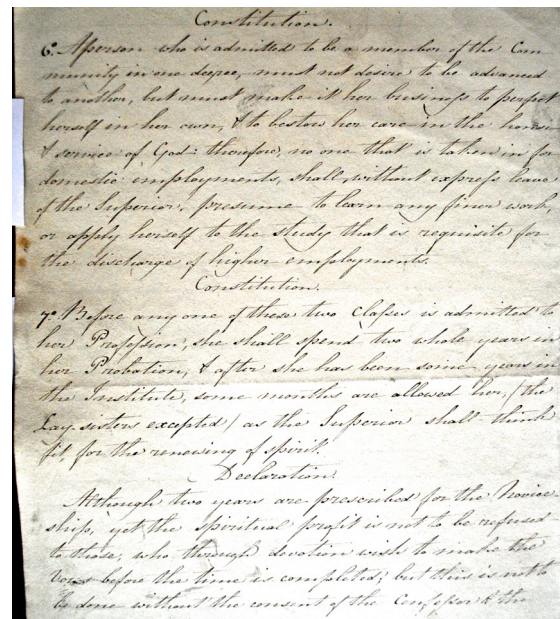 Constitution.
6.º A person who is admitted to be a member of the Com
munity in one degree, must not desire to be advanced
to another, but must make it her business to perfect
herself in her own, & to bestow her care in the honor
& service of God: therefore, no one that is taken in for
domestic employments, shall, without express leave
of the Superior, presume to learn any finer work
or apply herself to the study that is requisite for
the discharge of higher employments.
Constitution.
7.º Before any one of these two classes is admitted to
her Profession, she shall spend two whole years in
her Probation, & after she has been some years in
the Institute, some months are allowed her, (the
Lay-sisters excepted) as the Superior shall think
fit, for the renewing of spirit.
Declaration.
Although two years are prescribed for the Novice
ship, yet the spiritual profit is not to be refused
to those, who through devotion wish to make the
Vows before the time is completed; but this is not to
be done without the consent of the Confessor & the